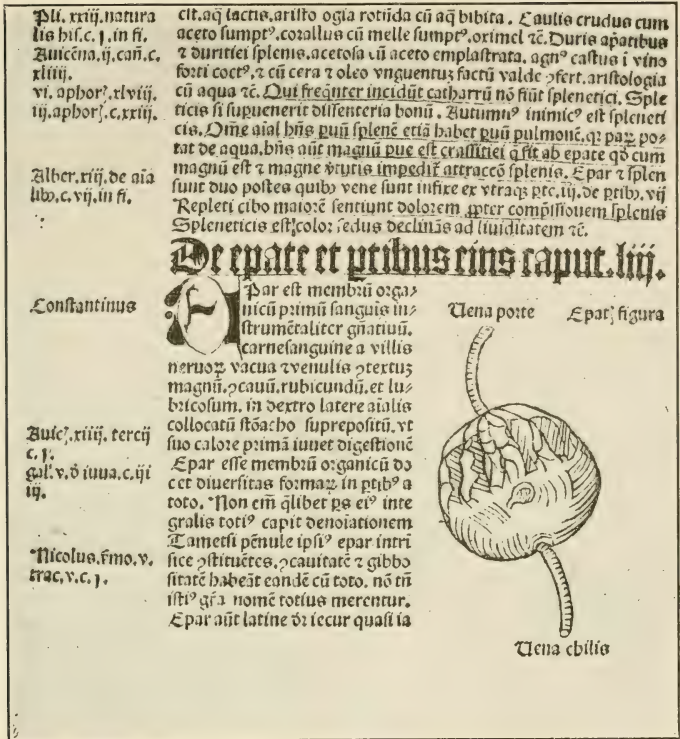 Pli. xxiij. natura
lis his. c. j. in fi.
Auicēna. ij. can̄. c.
xliiij.
vi. aphorꝫ. xlviij.
iij. aphorꝫ. c. xxiij.
Alber. xiij. de aīa
lib⁹. c. vij. in fi.
clt. aq̄ lactis. aristo ogia rotūda cū aq̄ bibita. Caulis crudus cum
aceto sumpt⁹. corallus cū melle sumpt⁹. oximel ⁊c. Duris ap̄atibus
⁊ duritiei splenis. acetosa cū aceto emplastrata. agn⁹ castus i vino
forti coct⁹. ⁊ cū cera ⁊ oleo vnguentuꝫ factū valde ꝯfert. aristologia
cū aqua ⁊c. Qui freq̄nter incidūt catharrū nō fiūt splenetici. Sple
ticis si supuenerit dissenteria bonū. Autumn⁹ inimic⁹ est spleneti
cis. Om̄e aīal hn̄s puū splenē etiā habet puū pulmonē. qꝛ paꝝ po⸗
tat de aqua. hn̄s aūt magnū pue est crassitiei q̄ fit ab epate qd̄ cum
magnū est ⁊ magne v̓tutis impedit ꝉ attraccē splenis. Epar ⁊ splen
sunt duo postes quib⁹ vene sunt infixe ex vtraqꝫ pte. iij. de ptib⁹. vij
Repleti cibo maiorē sentiunt dolorem ꝓpter compissionem splenis
Spleneticis est ꝉ color fedus declinās ad liuiditatem ⁊c.
De epate et ptibus eius caput. liij.
Constantinus
Auicꝫ. xiiij. tercij
c. j.
gal. v. d̄ iuua. c. iji
iij.
Nicolus. f̓mo. v.
trac. v. c. j.
Epar est membrū orga⸗
nicū primū sanguis in⸗
strumētaliter gn̄atiuū.
carne sanguine a villis
neruoꝝ vacua ⁊ venulis ꝯtextuꝫ
magnū. ꝯcauū. rubicundū. et lu⸗
bricosum. in dextro latere aīalis
collocatū stōacho suprepositū. vt
suo calore primā iuuet digestionē
Epar esse membrū organicū do
cet diuersitas formaꝝ in ptib⁹ a
toto. Non em̄ q̄libet ps ei⁹ inte
gralis toti⁹ capit denoīationem
Tametsi pēnule ipsi⁹ epar intrī
sice ꝯstituētes. ꝯcauitatē ⁊ gibbo
sitatē habeāt eandē cū toto. nō tn̄
isti⁹ gr̄a nomē totius merentur.
Epar aūt latine dr̄ iecur quasi ia
Uena porte Epatꝫ figura
Uena chilis